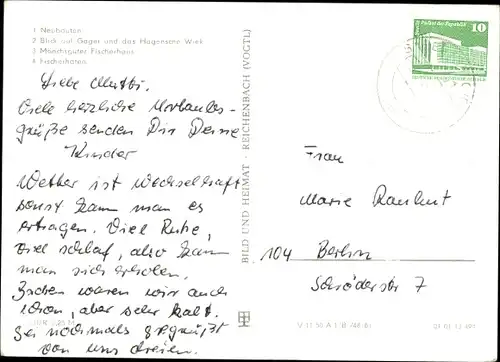 1 Neubauten
2 Blick auf Gager und das Hagensche Wiek
3 Mönchsguter Fischerhaus
4 Fischerhafen
Liebe Mutti.
Viele herzliche Urlaubs-
grüße senden Dir Deine
Kinder
Wetter ist wechselhaft
sonst kann man es
ertragen. Viel Ruhe,
viel schlaf, also kann
man sich erholen.
Baden waren wir auch
schon, aber sehr kalt.
Sei nochmals gegrüßt
von uns dreien.
BILD UND HEIMAT · REICHENBACH (VOGTL)
Palast der Republik
10
Frau
Marie Rauhut
104 Berlin
Schröderstr 7